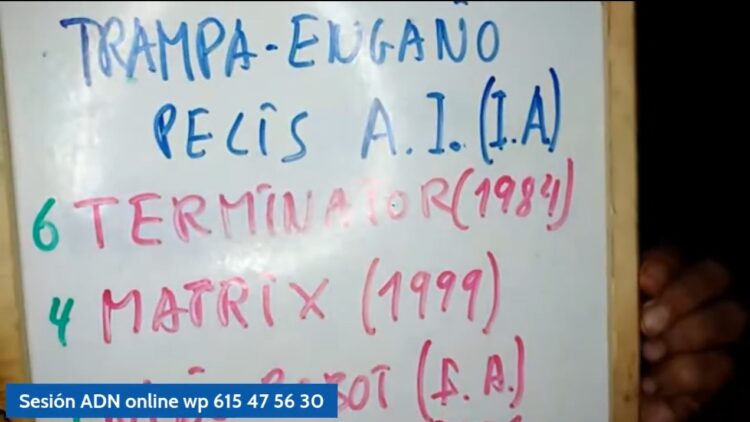 TRAMPA-ENGAÑO
PELIS A.I. (I.A)
6 TERMINATOR (1984)
4 MATRIX (1999)
ROBOT (I.A.)
Sesión ADN online wp 615 47 56 30